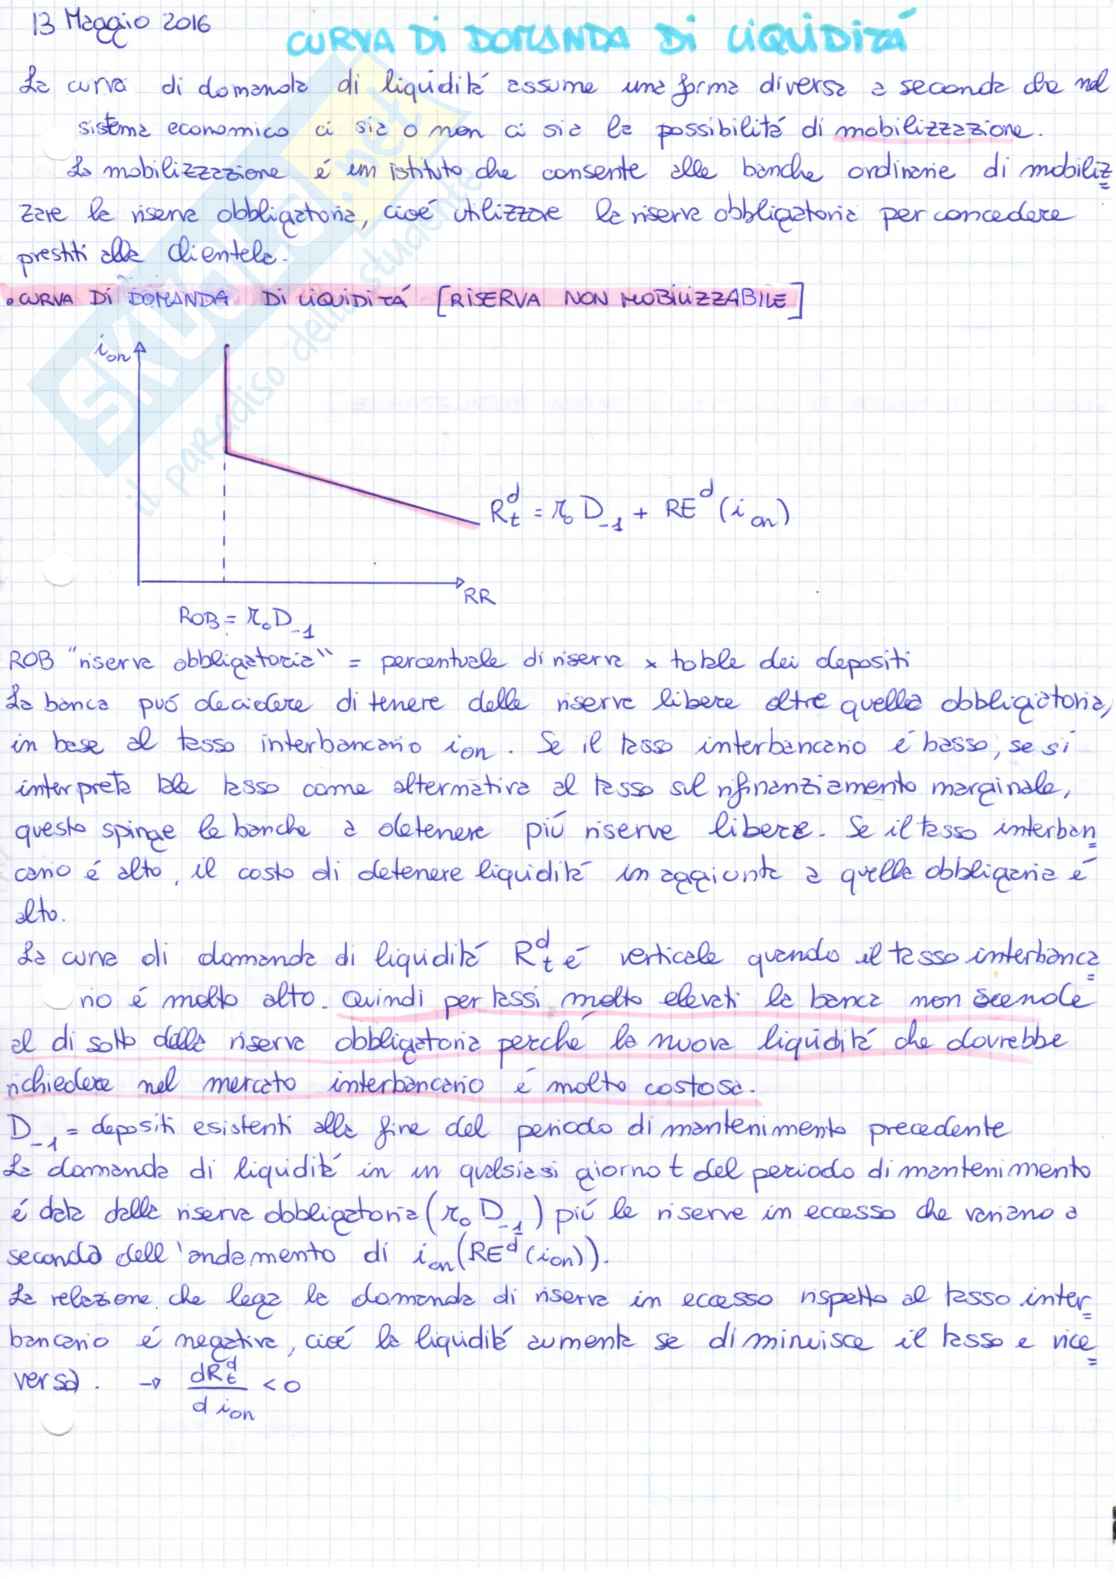 13 Maggio 2016
CURVA DI DOMANDA DI LIQUIDITÁ
La curva di domanda di liquiditá assume una forma diversa a seconda che nel
sistema economico ci sia o non ci sia la possibilitá di mobilizzazione.
La mobilizzazione é un istituto che consente alle banche ordinarie di mobiliz
zare la riserva obbligatoria, cioé utilizzare la riserva obbligatoria per concedere
prestiti alla clientela.
• CURVA DI DOMANDA DI LIQUIDITÁ [RISERVA NON MOBILIZZABILE]
i_on
R_t^d = r_o D_-1 + RE^d (i_on)
RR
ROB = r_o D_-1
ROB "riserva obbligatoria" = percentuale di riserva × totale dei depositi
La banca puó decidere di tenere delle riserve libere oltre quella obbligatoria,
in base al tasso interbancario i_on. Se il tasso interbancario é basso, se si
interpreta tale tasso come alternativa al tasso sul rifinanziamento marginale,
questo spinge le banche a detenere piú riserve libere. Se il tasso interban
cario é alto, il costo di detenere liquiditá in aggiunta a quella obbligaria é
alto.
La curva di domanda di liquiditá R_t^d é verticale quando il tasso interbanca
rio é molto alto. Quindi per tassi molto elevati la banca non scende
al di sotto della riserva obbligatoria perché la nuova liquiditá che dovrebbe
richiedere nel mercato interbancario é molto costosa.
D_-1 = depositi esistenti alla fine del periodo di mantenimento precedente
La domanda di liquiditá in un qualsiasi giorno t del periodo di mantenimento
é data dalla riserva obbligatoria (r_o D_-1) piú le riserve in eccesso che variano a
seconda dell'andamento di i_on (RE^d (i_on)).
La relazione che lega la domanda di riserva in eccesso rispetto al tasso inter
bancario é negativa, cioé la liquiditá aumenta se diminuisce il tasso e vice
versa. → dR_t^d / d i_on < 0
SKUOLA.net
il paradiso dello studente